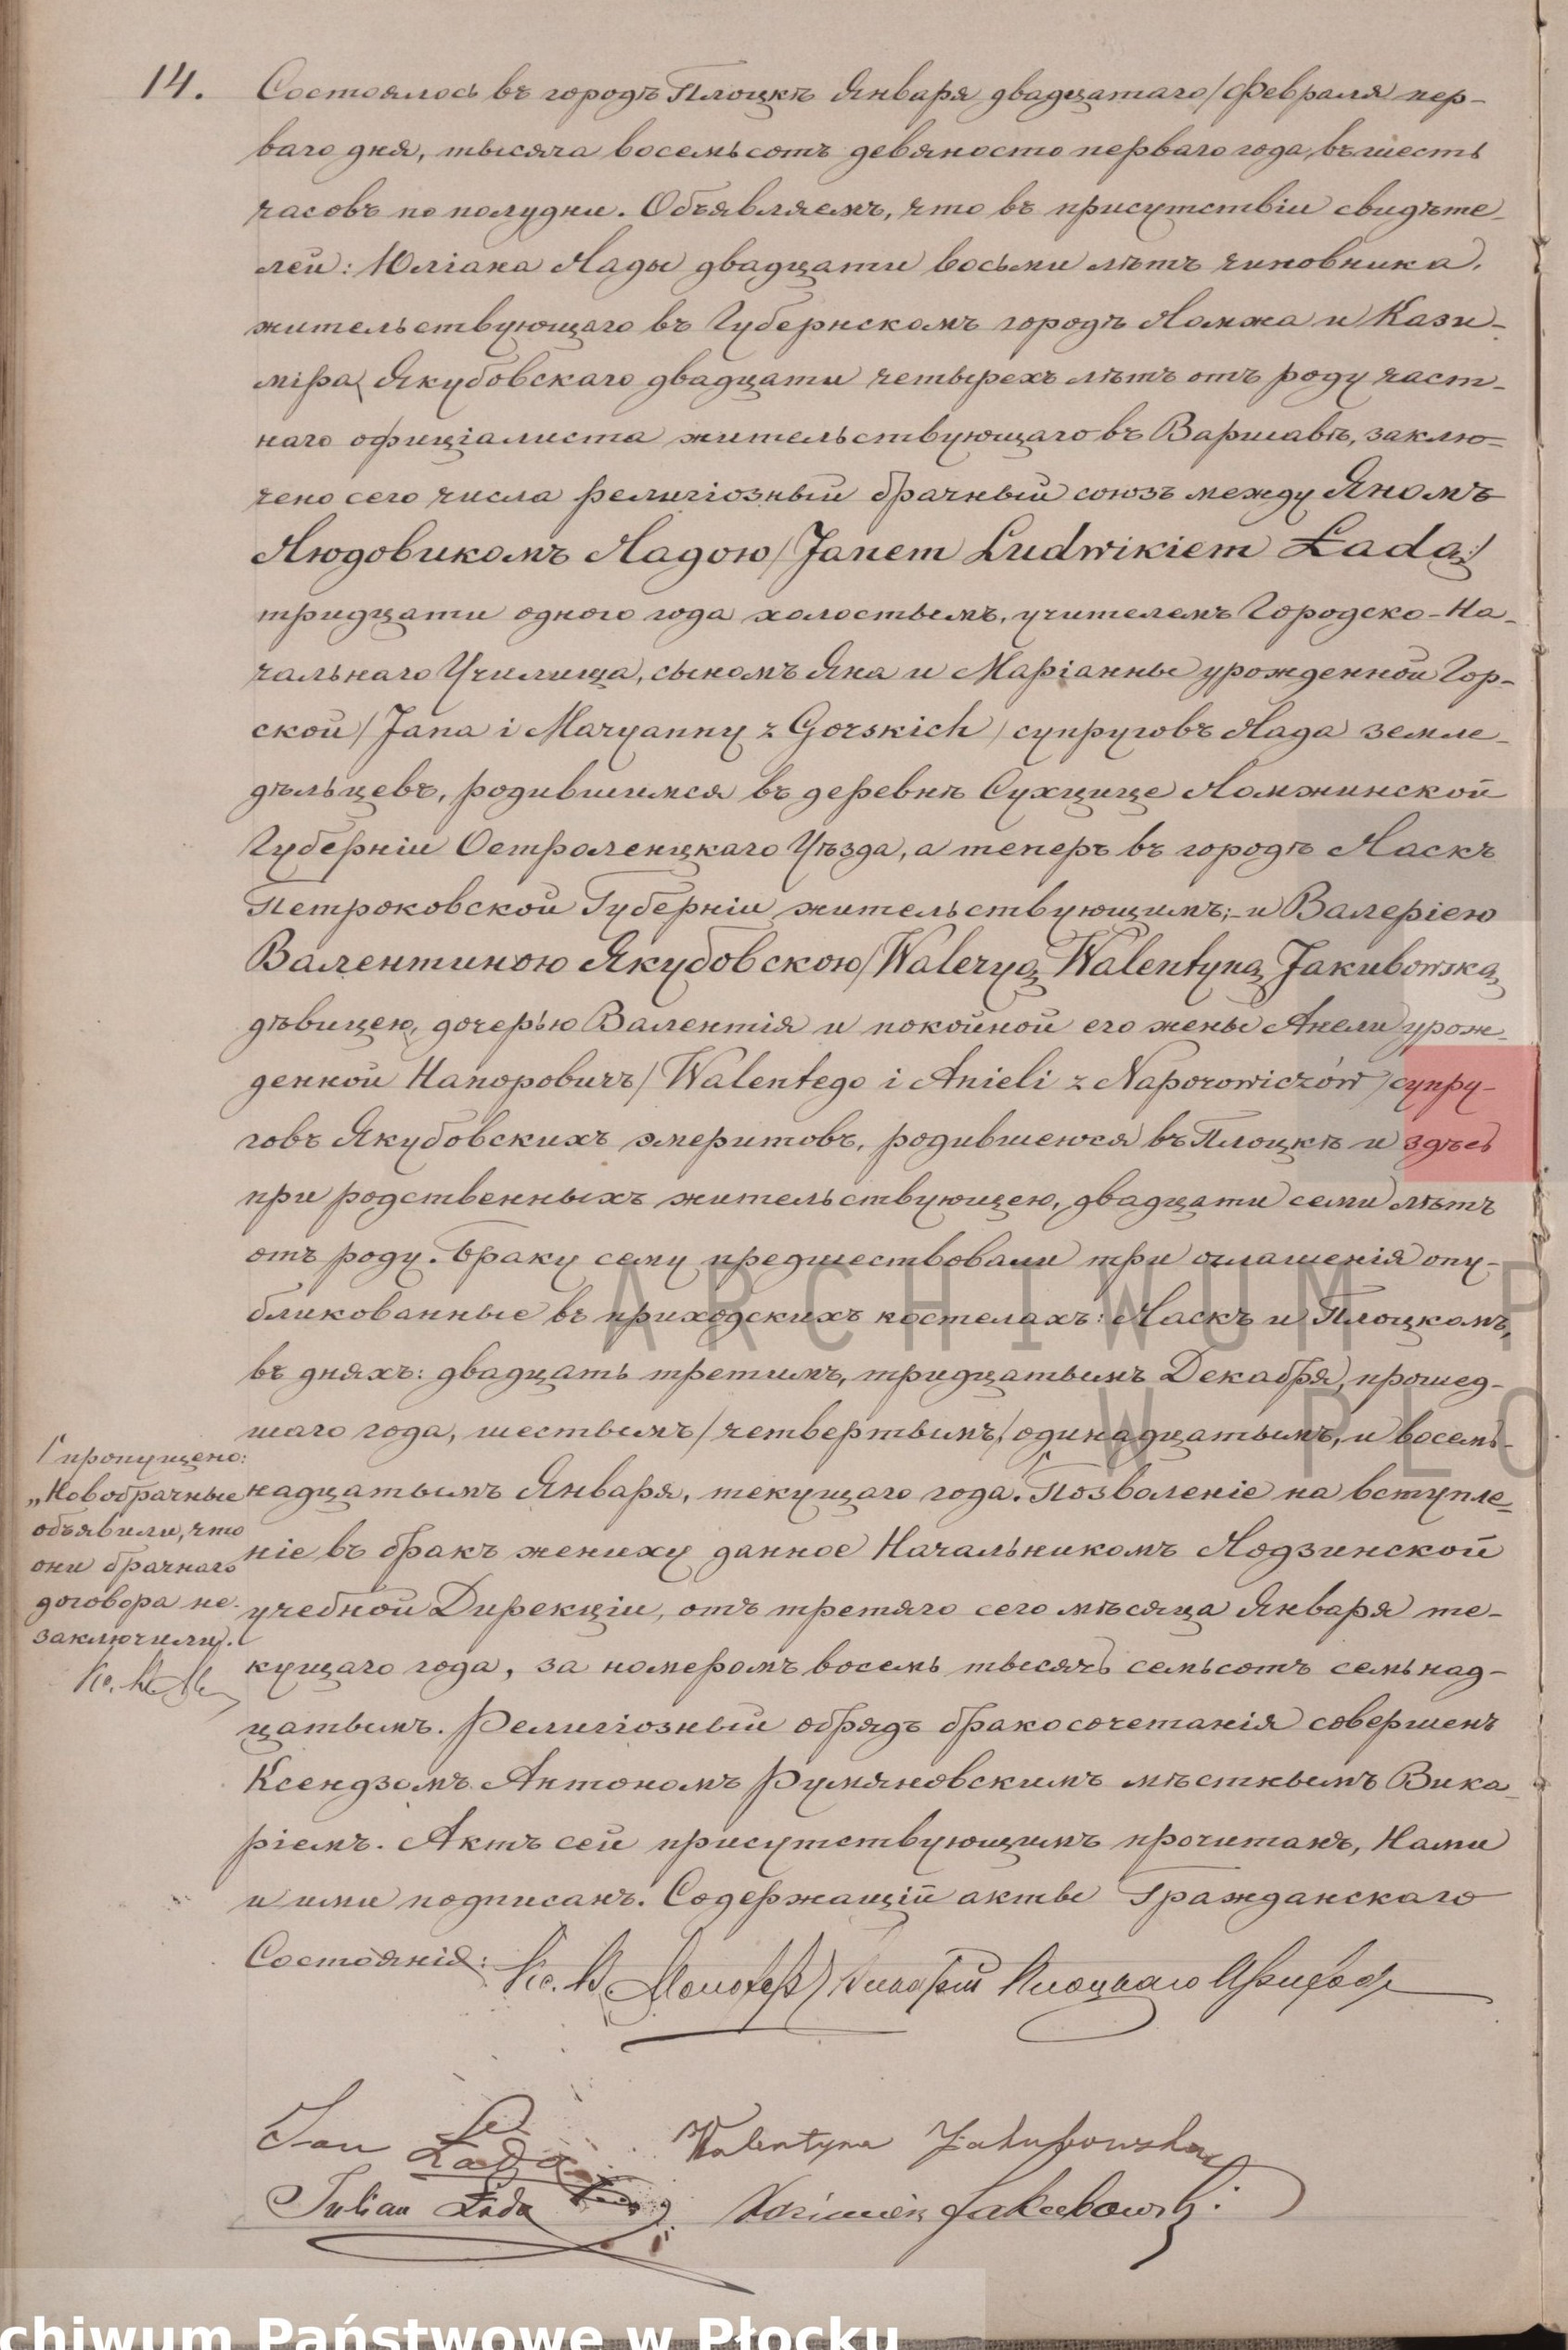 14. Состоялось въ городѣ Плоцкѣ Января двадцатаго/Февраля пер-
ваго дня, тысяча восемьсотъ девяносто перваго года, въ шесть
часовъ по полудни. Объявляемъ, что въ присутствіи свидѣте-
лей: Юліана Лады двадцати восьми лѣтъ чиновника,
жительствующаго въ Губернскомъ городѣ Ломжа и Кази-
міра Якубовскаго двадцати четырехъ лѣтъ отъ роду част-
наго офиціалиста жительствующаго въ Варшавѣ, заклю-
чено сего числа религіозный брачный союзъ между Яномъ
Людовикомъ Ладою/Janem Ludwikiem Ładą/
тридцати одного года холостымъ, учителемъ Городско-На-
чальнаго Училища, сыномъ Яна и Маріанны урожденной Гор-
ской/Jana i Maryanny z Gorskich/супруговъ Лада земле-
дѣльцевъ, родившимся въ деревнѣ Сухцице Ломжинской
Губерніи Остроленцкаго Уѣзда, а теперь въ городѣ Ласкъ
Петроковской Губерніи жительствующимъ;-и Валеріею
Валентиною Якубовскою/Waleryą Walentyną Jakubowską
дѣвицею, дочерью Валентія и покойной его жены Анели урож-
денной Напоровичъ/Walentego i Anieli z Naporowiczów/супру-
говъ Якубовскихъ эмеритовъ, родившеюся въ Плоцкѣ и здѣсь
при родственныхъ жительствующею, двадцати семи лѣтъ
отъ роду. Браку сему предшествовали три оглашенія опу-
бликованные въ приходскихъ костелахъ: Ласкъ и Плоцкомъ,
въ дняхъ: двадцать третимъ, тридцатымъ Декабря, прошед-
шаго года, шестымъ/четвертымъ/одинадцатымъ, и восемь-
надцатымъ Января, текущаго года. Позволеніе на вступле-
ніе въ бракъ жениху данное Начальникомъ Лодзинской
учебной Дирекціи, отъ третяго сего мѣсяца Января те-
кущаго года, за номеромъ восемь тысячъ семьсотъ семьнад-
цатымъ. Религіозный обрядъ бракосочетанія совершенъ
Ксендзомъ Антономъ Румяновскимъ мѣстнымъ Вика-
ріемъ. Актъ сей присутствующимъ прочитанъ, Нами
и ими подписанъ. Содержащій акты Гражданскаго
Состоянія:
пропущено:
„Новобрачные
объявили, что
они брачнаго
договора не
заключили.
Jan Łada
Walentyna Jakubowska
Julian Łada
Kazimierz Jakubowski
ARCHIWUM P
W PŁO
chiwum Państwowe w Płocku